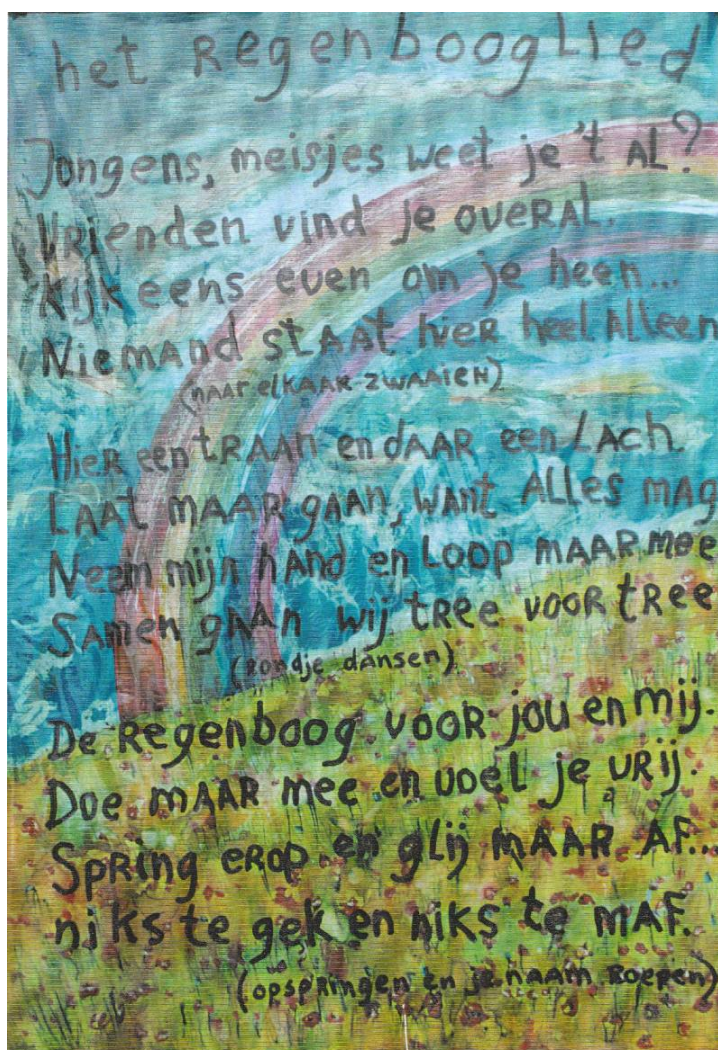 het Regenbooglied
Jongens, meisjes weet je 't AL?
Vrienden vind je overAL.
Kijk eens even om je heen...
Niemand stAAt hier heel Alleen
(naar elkaar zwaaien)
Hier een tRAAn en dAAR een LAch.
LAAt mAAR gaan, want Alles mag
Neem mijn hAnd en Loop mAARmee
SAmen gAAn wij tRee vooR tRee
(Rondje dansen)
De Regenboog vooR jou en mij.
Doe mAAR mee en voel je vrij.
Spring erop en glij mAAR AF...
niks te gek en niks te mAF.
(opspringen en je naam Roepen)